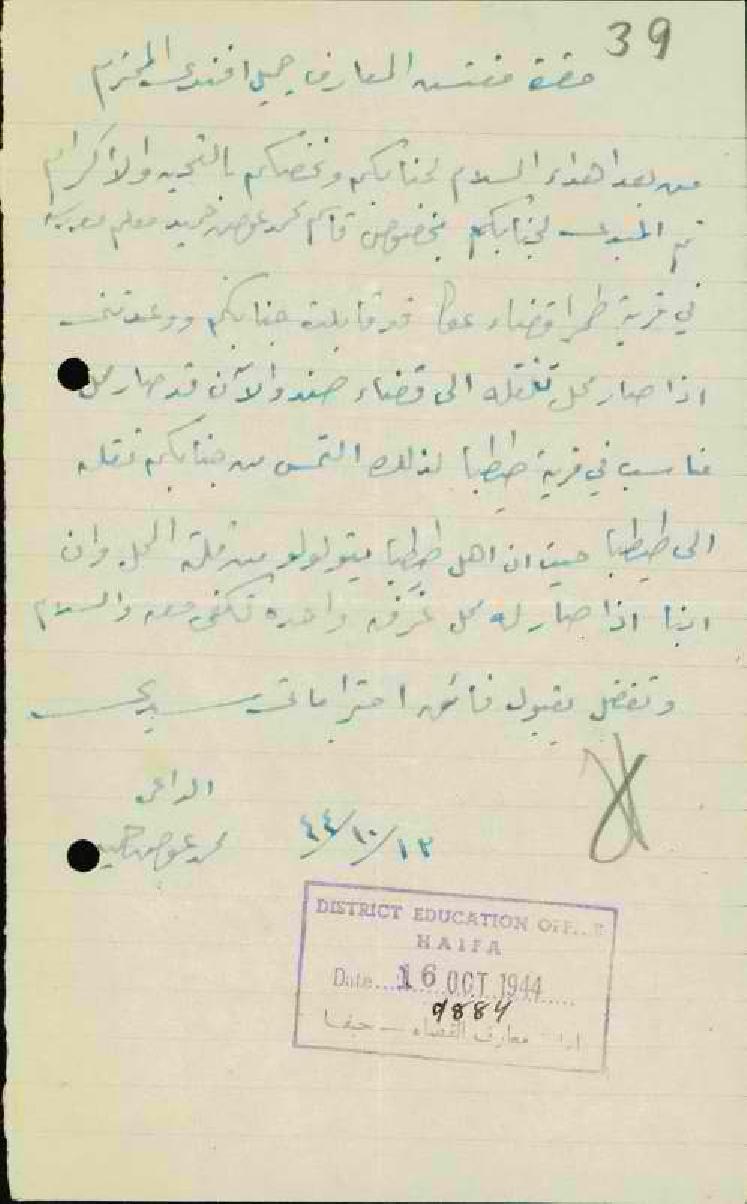 39
حضرة مفتش المعارف جميل افندي المحترم
من بعد اهداء السلام لجنابكم ونخصكم بالتحيه والاكرام
ثم المبدي لجنابكم بخصوص قاسم محمد عوض حميد معلم مدرسة
في قرية طمرا قضاء عكا قد قابلت جنابكم ووعدتني
اذا صار محل تنقله الى قضاء صفد والآن قد صار محل
مناسب في قرية طيطبا لذلك التمس من جنابكم نقله
الى طيطبا حيث ان اهل طيطبا يتولولو من قلة المحل وان
ابنا اذا صار له محل غرفه واحده تكفي معه والسلام
وتفضل بقبول فائق احتراماتي سيدي
الداعي
محمد عوض حميد
٤٤/١٠/١٢
DISTRICT EDUCATION OFFICE
HAIFA
Date 16 OCT 1944
9884
معارف القضاء - حيفا